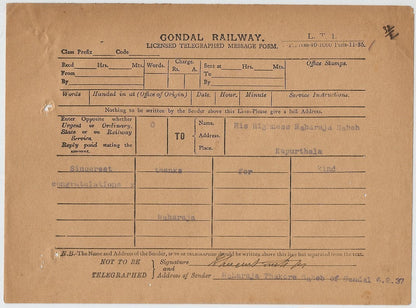 GONDAL RAILWAY.
LICENSED TELEGRAPHED MESSAGE FORM.
L. T. 1.
Class Prefix Code
Recd Hrs. Mts. Words. Charge. Sent at Hrs. Mts. Office Stamps.
From Rs. A. To
By By
Words Handed in at (Office of Origin) Date. Hour. Minute Service Instructions.
Nothing to be written by the Sender above this Line-Please give a full Address.
Enter Opposite whether
Urgent or Ordinary,
State or on Railway
Service.
Reply paid stating the
amount.
O
TO
Name, His Highness Maharaja Saheb
Address.
Place Kapurthala
Sincerest thanks for kind
congratulations
Maharaja
N.B. The Name and Address of the Sender, IF TO BE TELEGRAPHED should be written above this line but separated from the text.
NOT TO BE
TELEGRAPHED
Signature
and
Address of Sender
Maharaja Thakore Saheb of Gondal 6.2.37